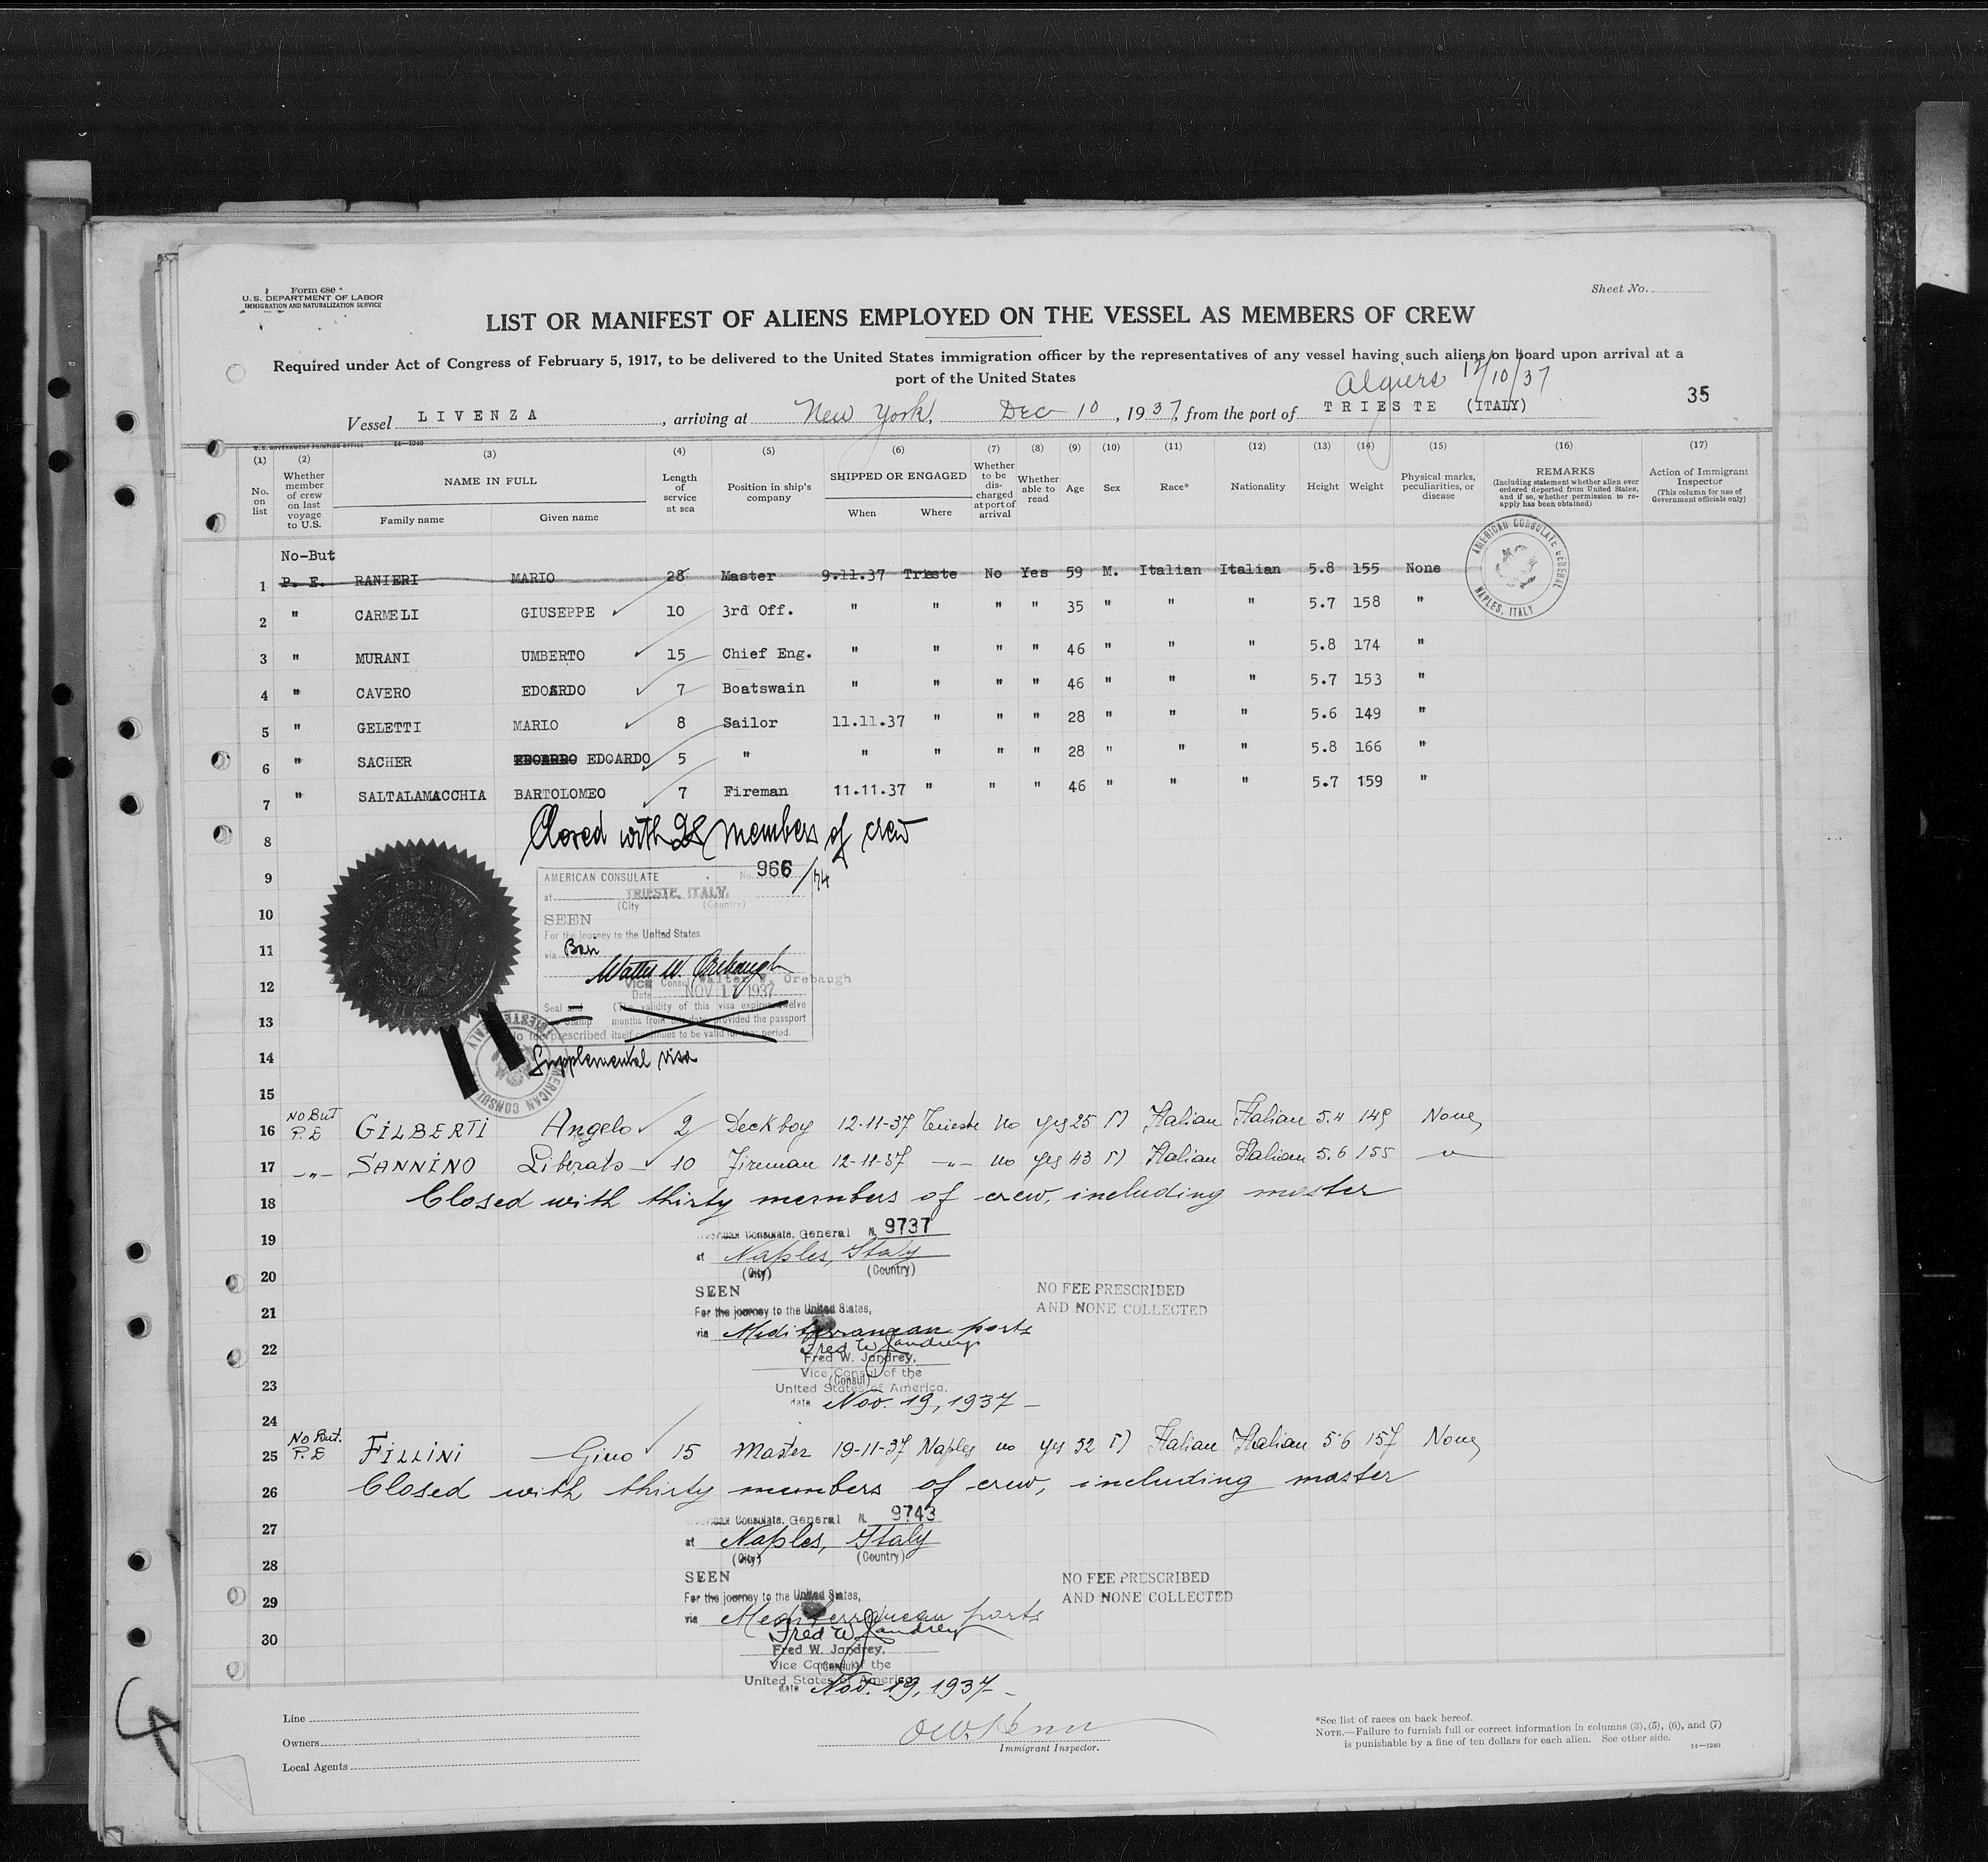 Form 680
U.S. DEPARTMENT OF LABOR
IMMIGRATION AND NATURALIZATION SERVICE
Sheet No.
LIST OR MANIFEST OF ALIENS EMPLOYED ON THE VESSEL AS MEMBERS OF CREW
Required under Act of Congress of February 5, 1917, to be delivered to the United States immigration officer by the representatives of any vessel having such aliens on board upon arrival at a
port of the United States
Algiers 12/10/37
35
Vessel LIVENZA, arriving at New York, Dec 10, 1937, from the port of TRIESTE (ITALY)
U.S. GOVERNMENT PRINTING OFFICE 14—1240
(1) (2) (3) (4) (5) (6) (7) (8) (9) (10) (11) (12) (13) (14) (15) (16) (17)
No. on list
Whether member of crew on last voyage to U.S.
NAME IN FULL
Family name
Given name
Length of service at sea
Position in ship's company
SHIPPED OR ENGAGED
When
Where
Whether to be discharged at port of arrival
Whether able to read
Age
Sex
Race*
Nationality
Height
Weight
Physical marks, peculiarities, or disease
REMARKS
(Including statement whether alien ever ordered deported from United States, and if so, whether permission to reapply has been obtained)
Action of Immigrant Inspector
(This column for use of Government officials only)
AMERICAN CONSULATE GENERAL NAPLES, ITALY
No-But
1 P. E. RANIERI MARIO 28 Master 9.11.37 Trieste No Yes 59 M. Italian Italian 5.8 155 None
2 " CARMELI GIUSEPPE 10 3rd Off. " " " " 35 " " " 5.7 158 "
3 " MURANI UMBERTO 15 Chief Eng. " " " " 46 " " " 5.8 174 "
4 " CAVERO EDOARDO 7 Boatswain " " " " 46 " " " 5.7 153 "
5 " GELETTI MARIO 8 Sailor 11.11.37 " " " 28 " " " 5.6 149 "
6 " SACHER EDOARDO 5 " " " " " 28 " " " 5.8 166 "
7 " SALTALAMACCHIA BARTOLOMEO 7 Fireman 11.11.37 " " " 46 " " " 5.7 159 "
8 Closed with 28 members of crew
9 AMERICAN CONSULATE No. 966
at TRIESTE, ITALY.
(City (Country)
10 SEEN
For the journey to the United States
11 via Bari
Walter W. Orebaugh
12 Vice Consul Walter W. Orebaugh
Date NOV 11 1937
Seal and (The validity of this visa expires twelve
13 Stamp months from this date provided the passport
No fee prescribed itself continues to be valid for that period.
14 Supplemental visa
AMERICAN CONSULATE TRIESTE ITALY
15
NO BUT
16 P. E GILBERTI Angelo 2 Deckboy 12-11-37 Trieste no yes 25 M Italian Italian 5.4 149 None
17 -"- SANNINO Liberato 10 Fireman 12-11-37 -"- no yes 43 M Italian Italian 5.6 155 -"-
18 Closed with thirty members of crew, including master
19 American Consulate General N. 9737
at Naples, Italy
20 (City) (Country)
SEEN NO FEE PRESCRIBED
21 For the journey to the United States, AND NONE COLLECTED
via Mediterranean ports
22 Fred W. Jandrey
Fred W. Jandrey,
Vice Consul of the
(Consul)
23 United States of America.
date Nov. 19, 1937
24
No But.
25 P. E FILLINI Gino 15 Master 19-11-37 Naples no yes 52 M Italian Italian 5.6 157 None
26 Closed with thirty members of crew, including master
27 American Consulate General N. 9743
at Naples, Italy
28 (City) (Country)
SEEN NO FEE PRESCRIBED
29 For the journey to the United States, AND NONE COLLECTED
via Mediterranean ports
30 Fred W Jandrey
Fred W. Jandrey,
Vice Consul of the
(Consul)
United States of America
date Nov. 19, 1937
Line
Owners
Local Agents
Immigrant Inspector.
*See list of races on back hereof.
NOTE.—Failure to furnish full or correct information in columns (3), (5), (6), and (7)
is punishable by a fine of ten dollars for each alien. See other side.
14—1240